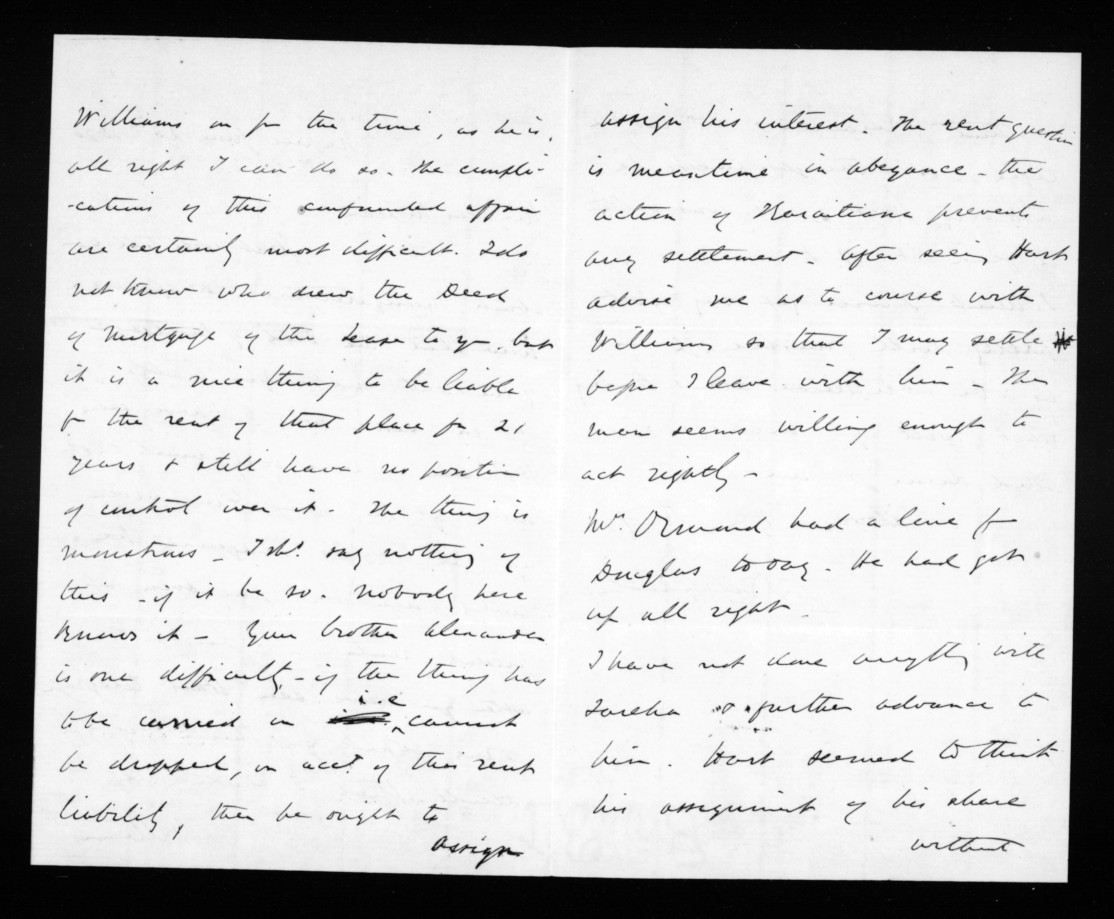 Williams on for the time, as he is,
all right I can do so - The compli-
-cations of this confounded affair
are certainly most difficult. I do
not know who drew the Deed
of mortgage of the Lease to you. but
it is a nice thing to be liable
for the rent of that place for 21
years & still have no position
of control over it - The thing is
monstrous - I shd. say nothing of
this - if it be so - nobody here
knows it - Your brother Alexander
is one difficulty, - if the thing has
to be carried on i.e cannot
be dropped, on acct. of this rent
liability, then he ought to
assign
assign his interest. The rent question
is meantime in abeyance - the
action of Karaitiana prevents
any settlement - After seeing Hart
advise me as to course with
Williams so that I may settle
before I leave with him - The
man seems willing enough to
act rightly -
Mr. Ormond had a line fr
Douglas today - He had got
up all right -
I have not done anything with
Tareha so further advance to
him. Hart seemed to think
his assignment of his share
without